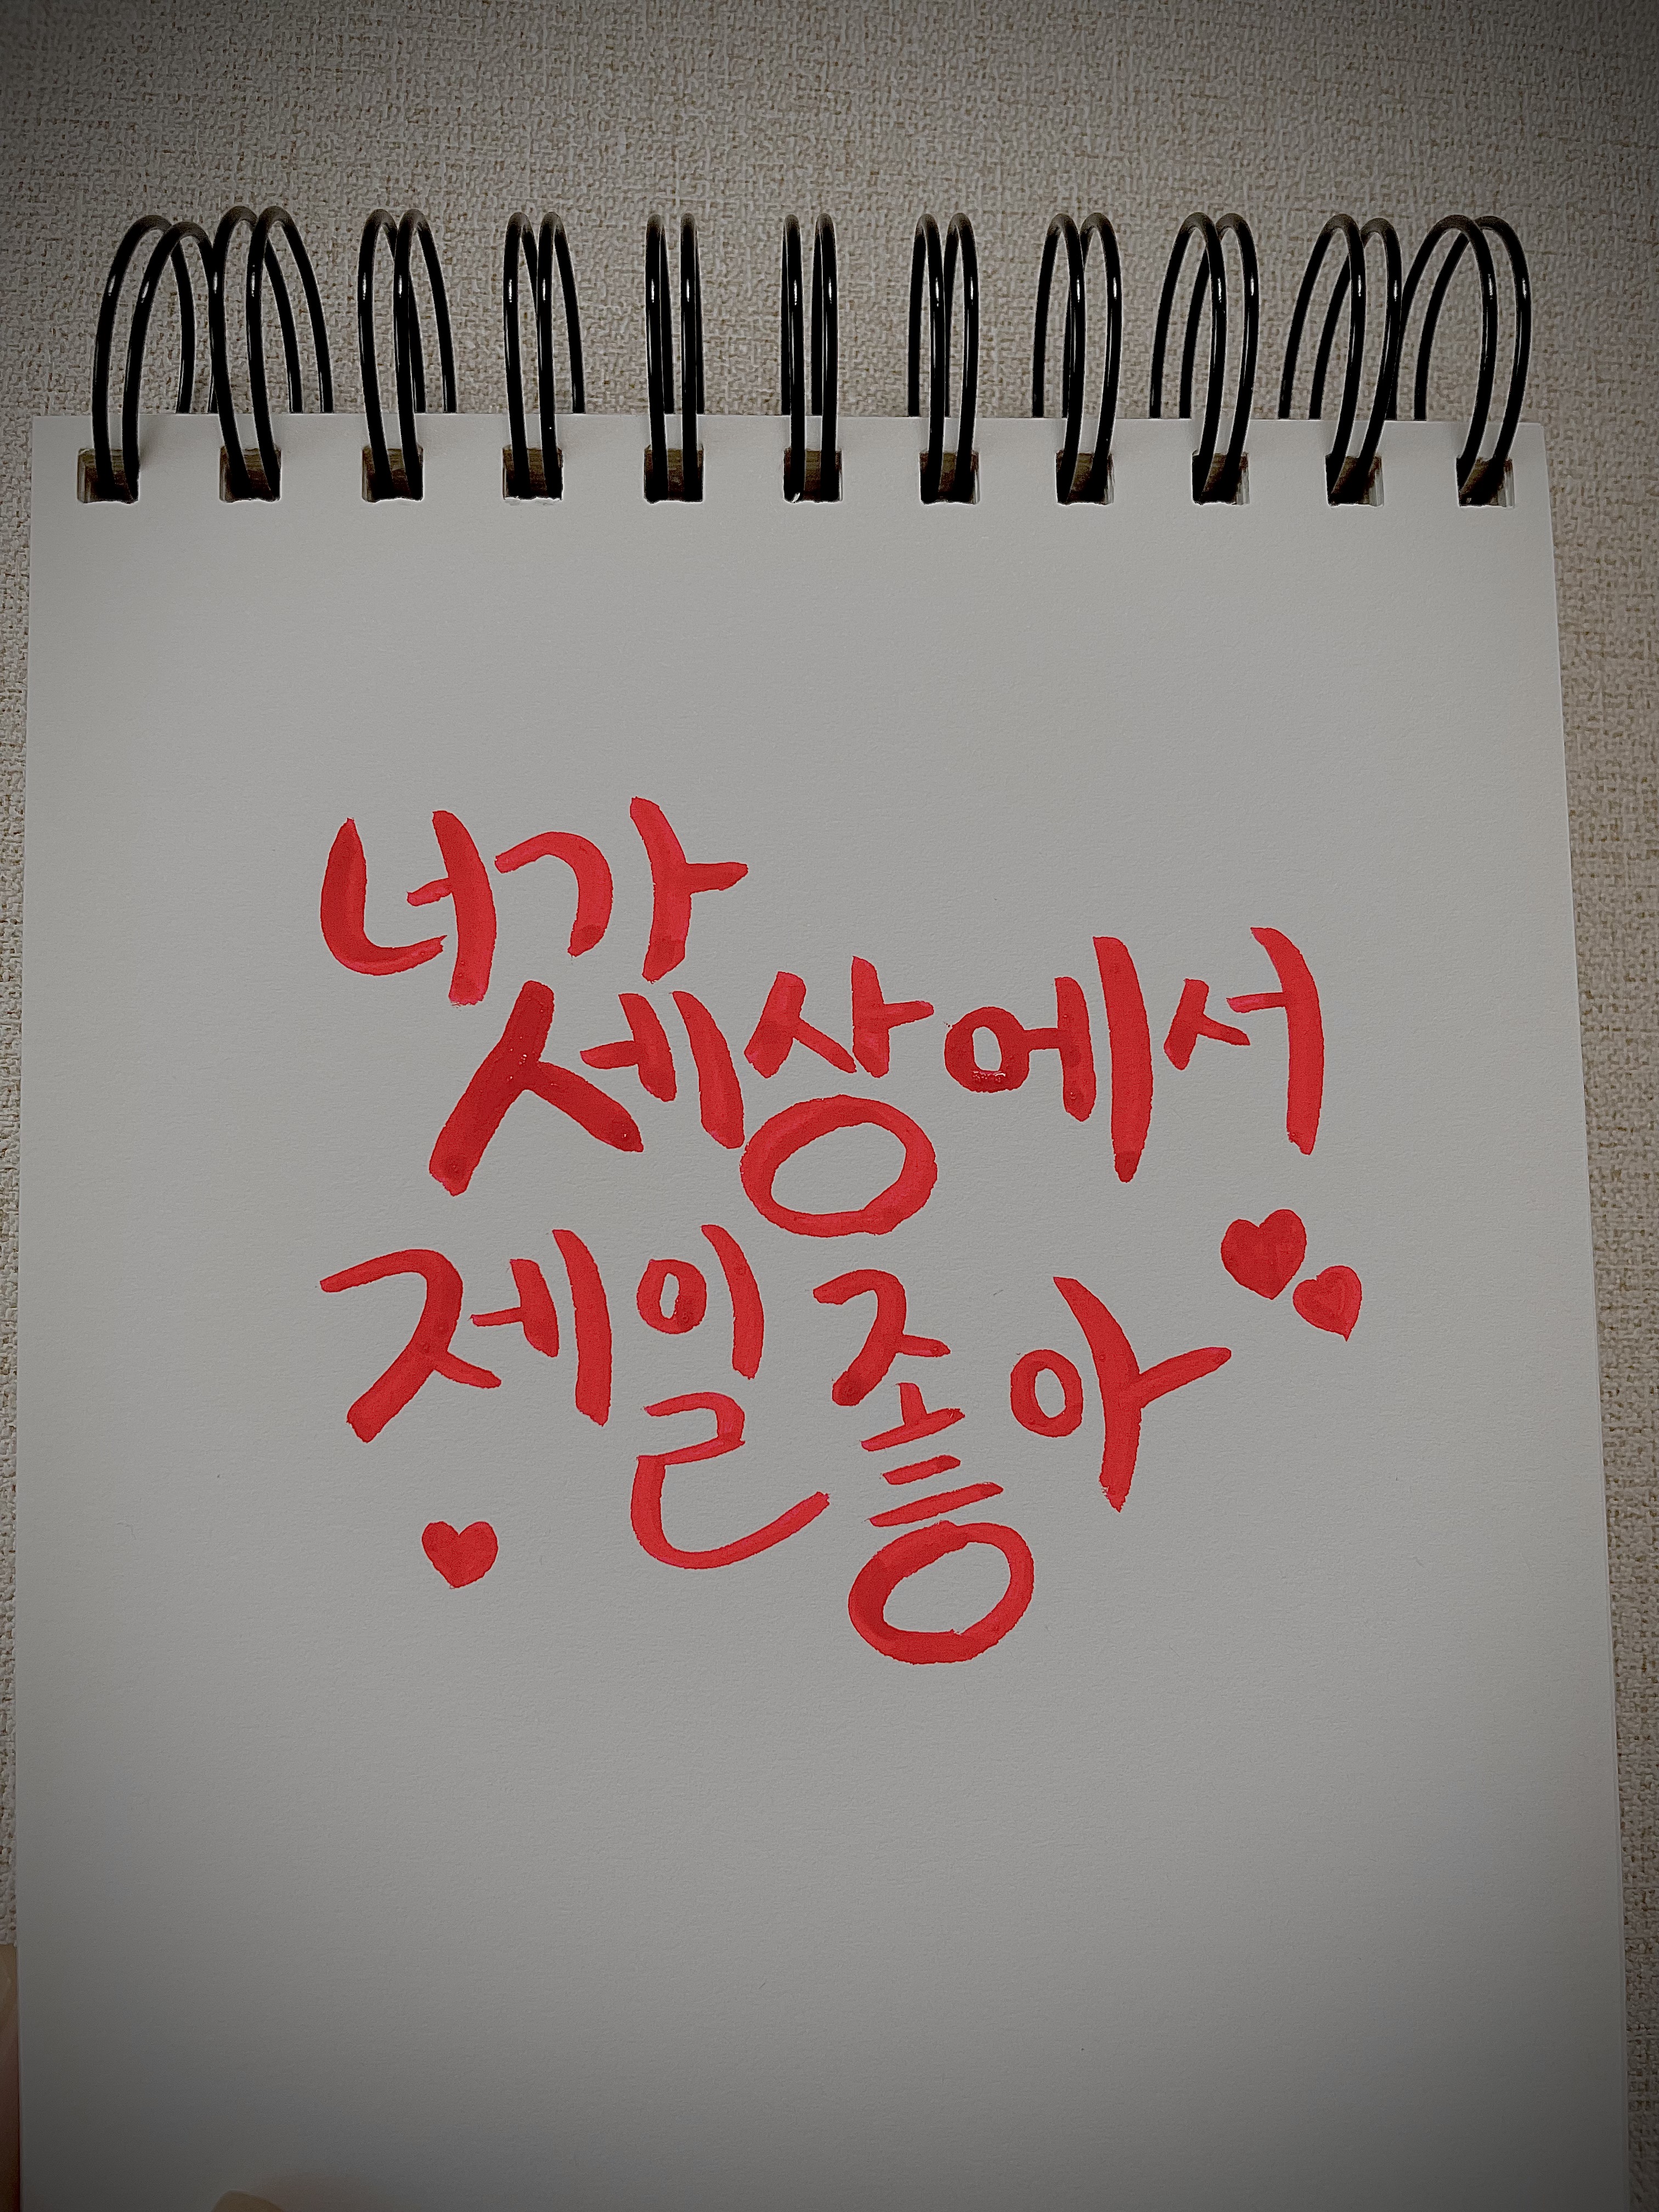 너가
세상에서
제일 좋아